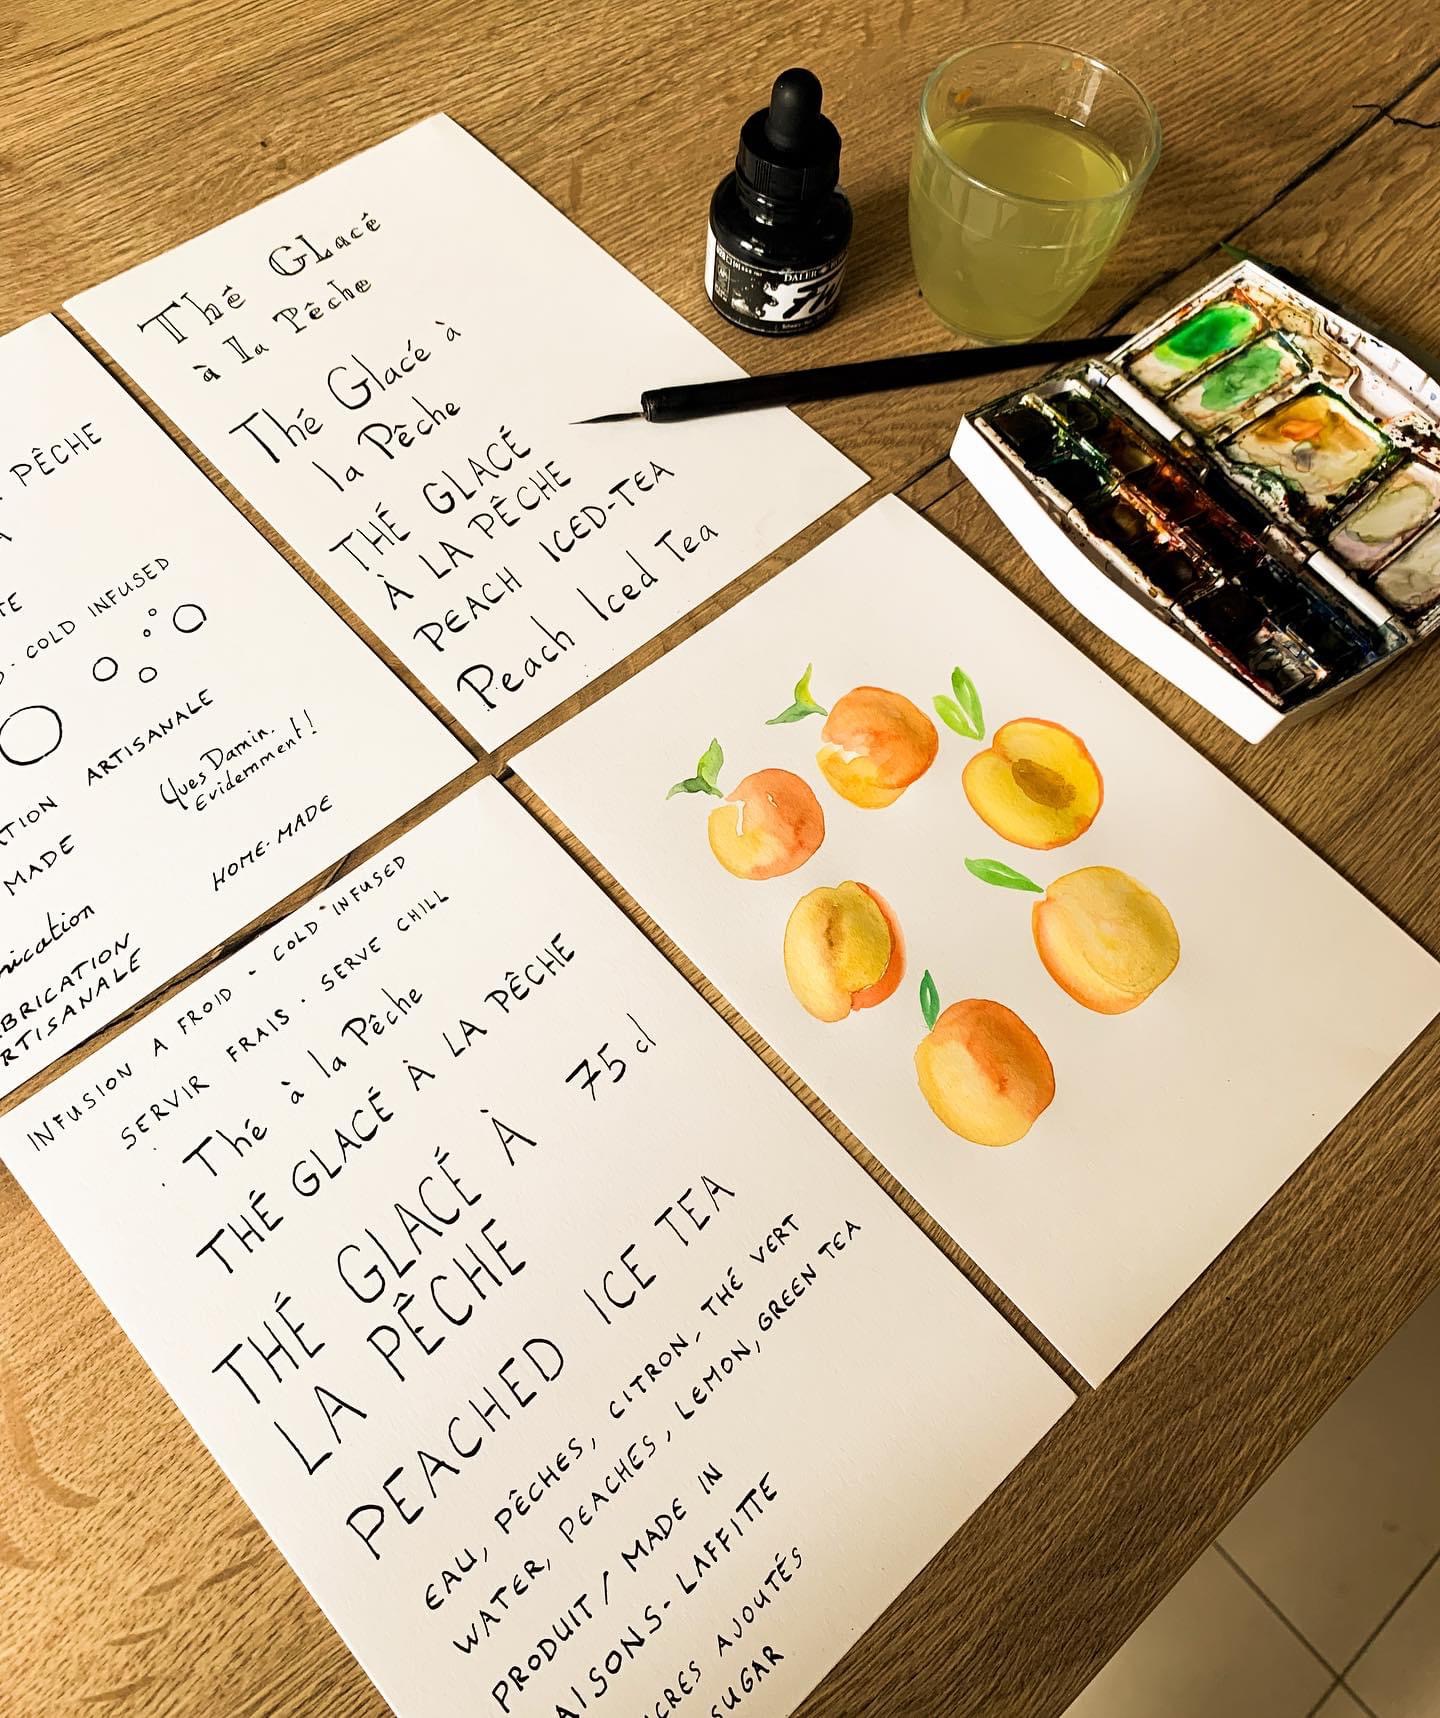 Thé GLacé
à la Pêche
Thé Glacé à
la Pêche
THÉ GLACÉ
À LA PÊCHE
PEACH ICED-TEA
Peach Iced Tea
DALER
PÊCHE
COLD INFUSED
ARTISANALE
Yves Damin.
Evidemment!
MADE
HOME-MADE
INFUSION A FROID - COLD INFUSED
SERVIR FRAIS. SERVE CHILL
Thé à la Pêche
THÉ GLACÉ À LA PÊCHE
THÉ GLACÉ À
LA PÊCHE
75 cl
PEACHED ICE TEA
EAU, PÊCHES, CITRON, THÉ VERT
WATER, PEACHES, LEMON, GREEN TEA
PRODUIT / MADE IN
AISONS-LAFFITTE
CRES AJOUTÉS
SUGAR